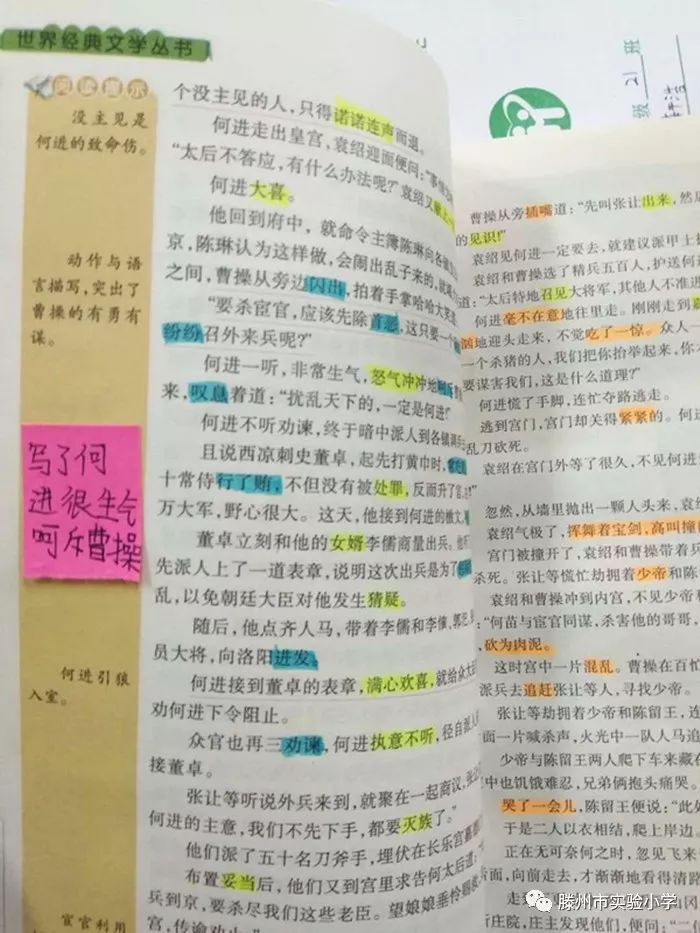 世界经典文学丛书
阅读提示
没主见是
何进的致命伤。
动作与语
言描写，突出了
曹操的有勇有
谋。
写了何
进很生气
呵斥曹操
何进引狼
入室。
宦官利用
个没主见的人，只得诺诺连声而退。
何进走出皇宫，袁绍迎面便问：“事情
“太后不答应，有什么办法呢？”袁绍又献上一
何进大喜。
他回到府中，就命令主簿陈琳向各镇
京，陈琳认为这样做，会闹出乱子来的，就
之间，曹操从旁边闪出，拍着手掌哈哈大笑
“要杀宦官，应该先除首恶，这只要一个
纷纷召外来兵呢？”
何进一听，非常生气，怒气冲冲地
来，叹息着道：“扰乱天下的，一定是何进！”
何进不听劝谏，终于暗中派人到各镇调兵
且说西凉刺史董卓，起先打黄巾时，
十常侍行了贿，不但没有被处罪，反而升了官
万大军，野心很大。这天，他接到何进的檄文，
董卓立刻和他的女婿李儒商量出兵。他
先派人上了一道表章，说明这次出兵是为了
乱，以免朝廷大臣对他发生猜疑。
随后，他点齐人马，带着李儒和李傕、郭汜
员大将，向洛阳进发。
何进接到董卓的表章，满心欢喜，就给众大臣
劝何进下令阻止。
众官也再三劝谏，何进执意不听，径自派人
接董卓。
张让等听说外兵来到，就聚在一起商议，张让
何进的主意，我们不先下手，都要灭族了。”
他们派了五十名刀斧手，埋伏在长乐宫嘉德
布置妥当后，他们又到宫里求告何太后道：
兵到京，要杀尽我们这些老臣。望娘娘垂怜
宫，传谕劝止。”
级 21 班
曹操从旁插嘴道：“先叫张让出来，然后
的见识！”
袁绍见何进一定要去，就建议派甲士
袁绍和曹操选了精兵五百人，护送何进
道：“太后特地召见大将军，其他人不准进
何进毫不在意地往里走。刚刚走到嘉
汹地迎头走来，不觉吃了一惊。众人一
一个杀猪的人，我们把你抬举起来，你
要谋害我们，这是什么道理？”
何进慌了手脚，连忙夺路逃走。
逃到宫门，宫门却关得紧紧的。何进
乱刀砍死。
袁绍在宫门外等了很久，不见何进
忽然，从墙里抛出一颗人头来，袁绍
袁绍气极了，挥舞着宝剑，高叫撞
宫门被撞开了，袁绍和曹操带着兵
杀死。张让等慌忙劫拥着少帝和陈
袁绍和曹操冲到内宫，不见少帝和
“何苗与宦官同谋，杀害他的哥哥，
砍为肉泥。
这时宫中一片混乱。曹操在百忙
派兵去追赶张让等人，寻找少帝。
张让等劫拥着少帝和陈留王，连
面一片喊杀声，火光中一队人马追
少帝与陈留王两人爬下车来藏在
中也饥饿难忍，兄弟俩抱头痛哭。
哭了一会儿，陈留王便说：“此处
于是二人以衣相结，爬上岸边。
正在无可奈何之时，忽见飞来
面，向前走去，才渐渐地看得清路
庄院，庄主发现他们，便问：“
滕州市实验小学